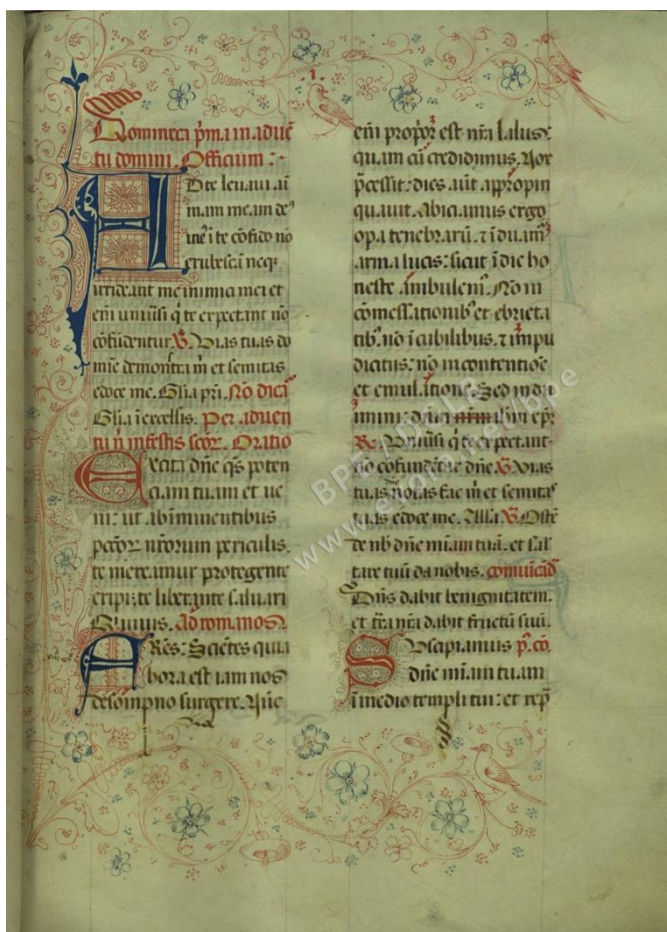 Dominica p̄ma in aduē
tu domini. Officium :
AD te leuaui aī
mam meam de⁹
meꝰ ī te cōfido nō
erubescā neq;
irrideant me inimici mei et
em̄ uniūsi q̄ te expectant nō
cōfūdentur. V̄. Uias tuas do
mīe demonstra m̄ et semitas
edoce me. Gl̄ia pr̄i. Nō dicit̄
Gl̄ia ī excelsis. Per aduen
tū n̄ in festis scōr. Oratio
Excita dn̄e q̄s poten
ciam tuam et ue
ni: ut ab īminentibus
pccōꝝ nr̄orum periculis.
te mereamur protegente
eripi: te liberante saluari
Qui uiuis. Ad romanos
FRēs: Sciētes quia
hora est iam nos
de sōmpno surgere. Nūc
1.
em̄ propior est nr̄a salus:
quam cū credidimus. Nox
p̄cessit: dies aūt appropin
quauit. Abiciamus ergo
opa tenebrarū. ⁊ īduam̄
arma lucis: sicut ī die ho
neste ambulem⁹. Nō in
cōmessationib⁹ et ebrieta
tib⁹. nō ī cubilibus. ⁊ īmpu
dicitiis: nō in contentiōe
et emulatione. Sed indu
imini dn̄m ihm xp̄r
R̄. Uniūsi q̄ te expectant
nō cōfundētur dn̄e. V̄. Uias
tuas notas fac m̄ et semitas
tuas edoce me. Alla. V̄. Ostē
de nb̄ dn̄e mīam tuā. et sal
tare tuū da nobis. cōmunicād
Dn̄s dabit benignitatem.
et tr̄a nr̄a dabit fructū suū.
Suscipiamus p̄. cō.
dn̄e mīam tuam
ī medio templi tui: et rep̄
BPE
www.